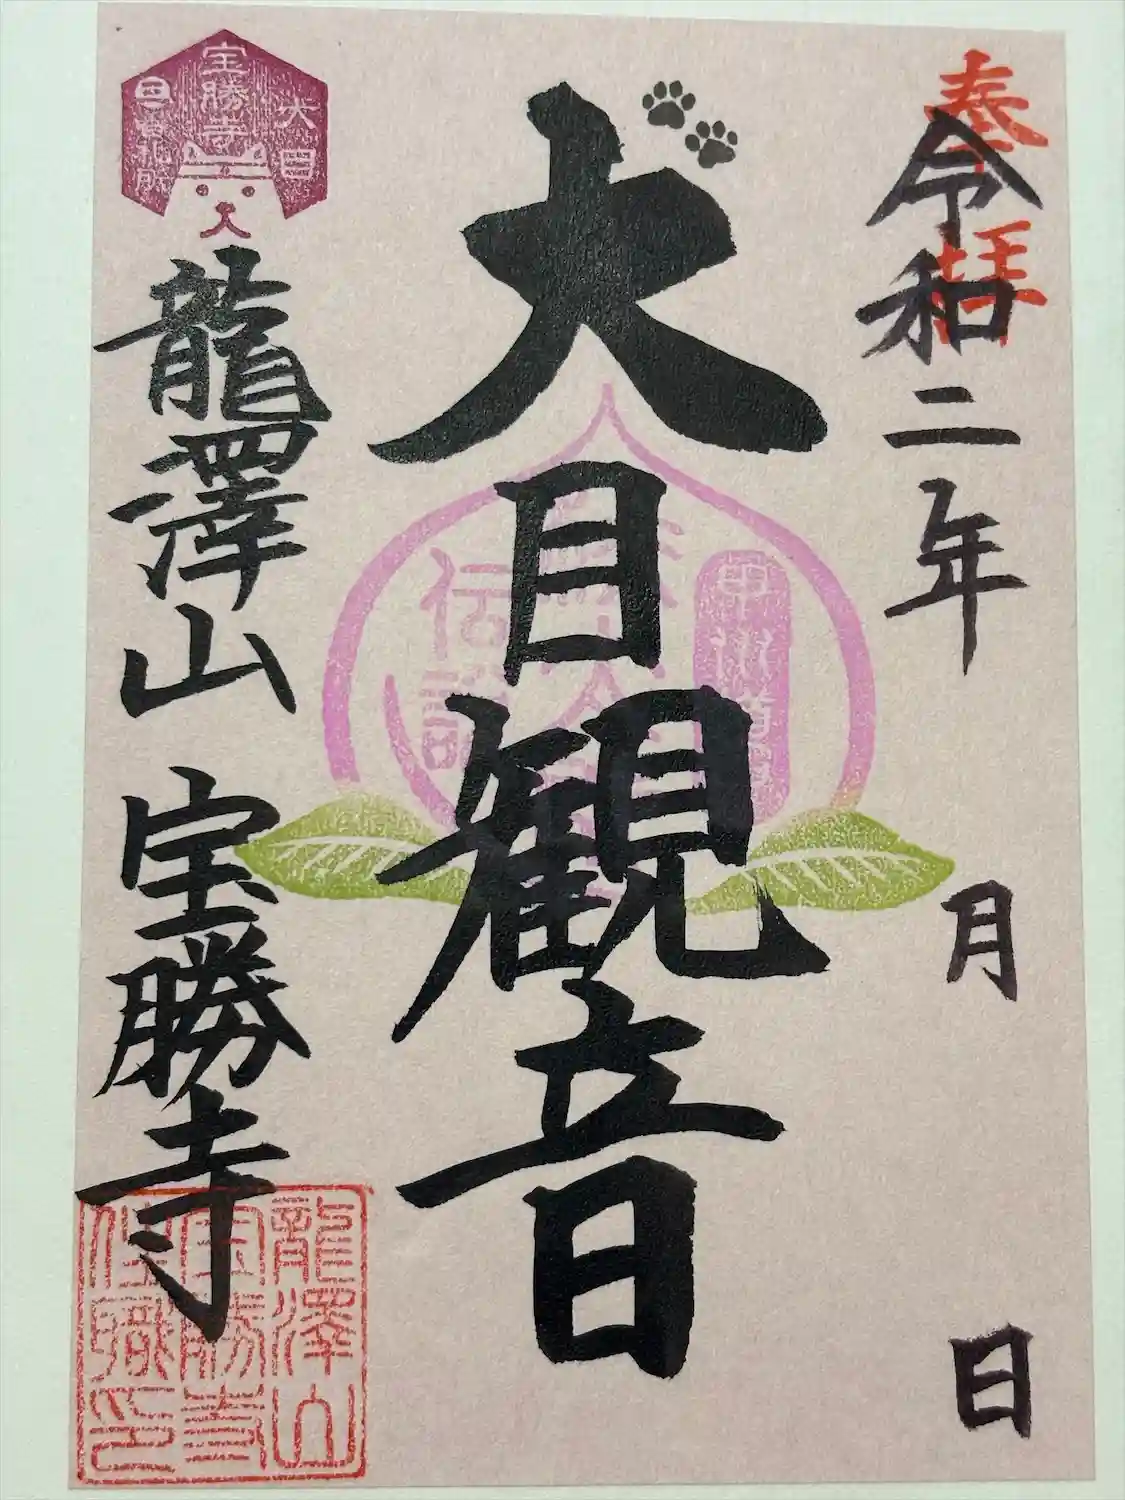 奉拝
令和二年
月
日
犬目観音
龍澤山 宝勝寺
犬目
宝勝寺
番札所
甲州
伝説
龍澤山
宝勝寺
住職印